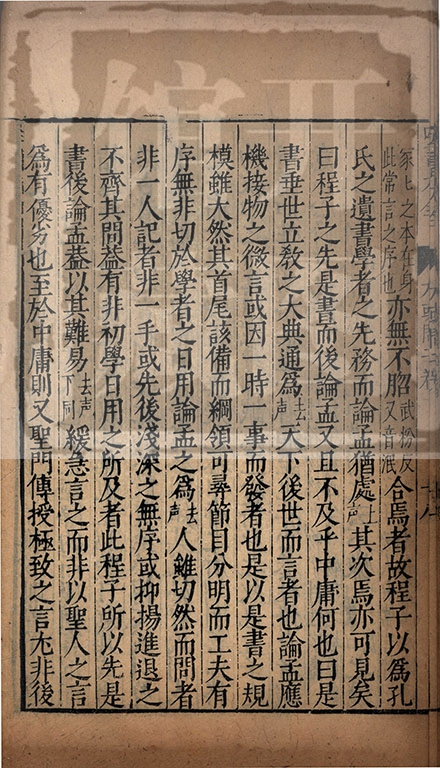 家匕之本在身此常言之序也亦無不脗武粉反又音泯合焉者故程子以為孔
氏之遺書學者之先務而論孟猶處上声其次焉亦可見矣
曰程子之先是書而後論孟又且不及乎中庸何也曰是
書垂世立教之大典通為去声天下後世而言者也論孟應
機接物之微言或因一時一事而發者也是以是書之規
模雖大然其首尾該備而綱領可尋節目分明而工夫有
序無非切於學者之日用論孟之為去声人雖切然而問者
非一人記者非一手或先後淺深之無序或抑揚進退之
不齊其間蓋有非初學日用之所及者此程子所以先是
書後論孟葢以其難易去声下同緩急言之而非以聖人之言
為有優劣也至於中庸則又聖門傳授極致之言尤非後